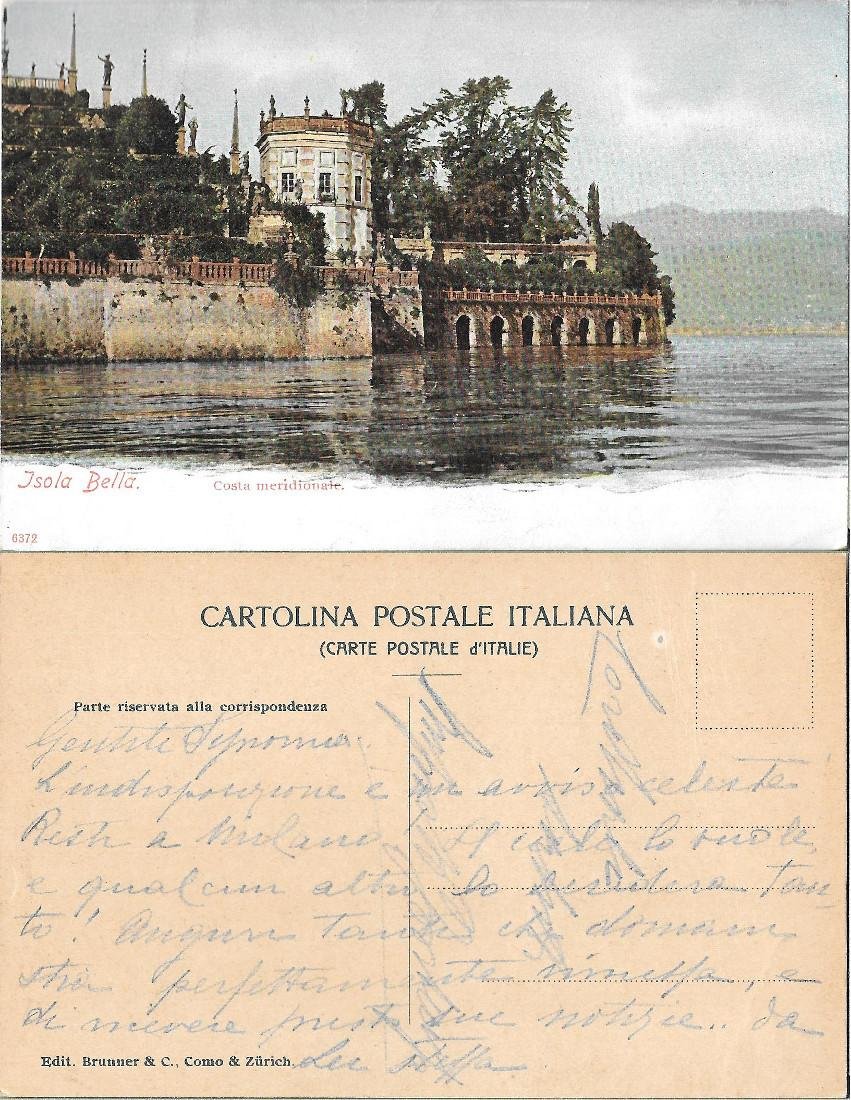 Isola Bella.
Costa meridionale.
6372
CARTOLINA POSTALE ITALIANA
(CARTE POSTALE d'ITALIE)
Parte riservata alla corrispondenza
Gentile Signorina.
L'indisposizione è un avviso celeste!
Resti a Milano. Il cielo lo vuole,
e qualcun altro lo desidera tan-
to! Auguri tanti che domani
stia perfettamente rimessa, e
di avere presto sue notizie.. da
Lei stessa
Edit. Brunner & C., Como & Zürich.